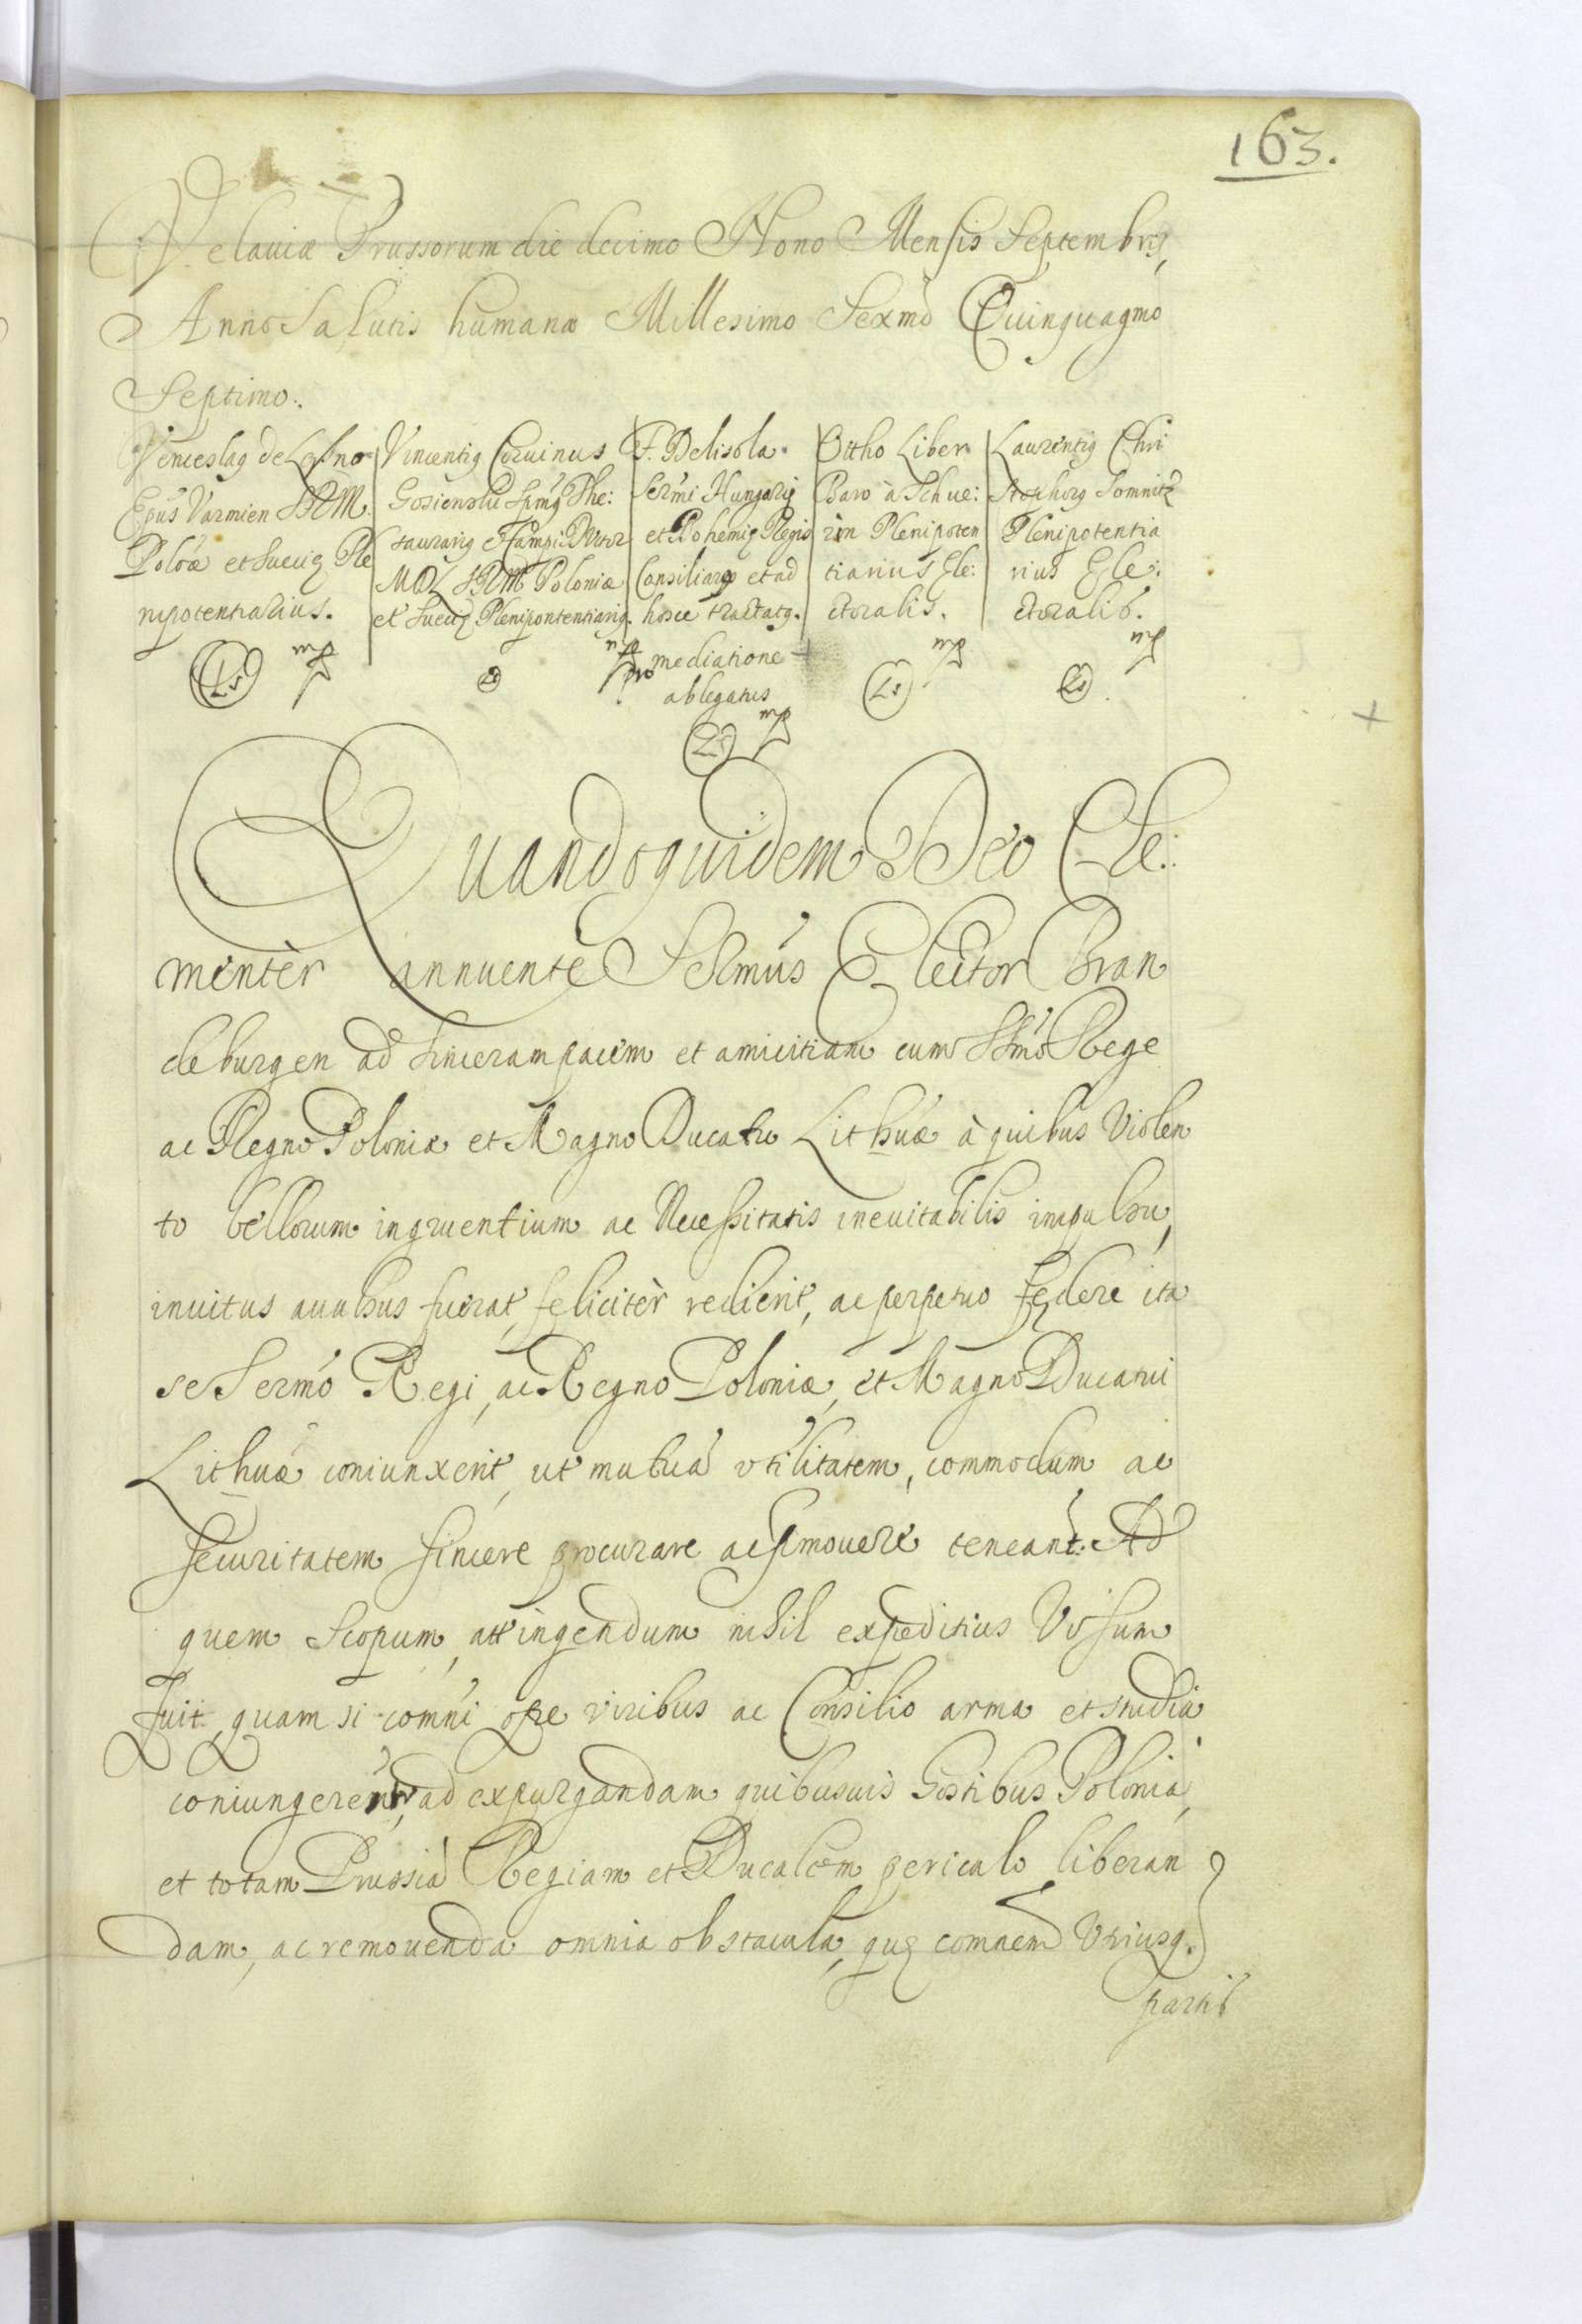 163.
Velaviæ Prussorum die decimo Nono Mensis Septembris,
Anno Salutis humanæ Millesimo Sexmo Quinquagmo
Septimo.
Venceslaq de Lesno
Epus Varmien SRM
Polóæ et Sueciæ Ple
nipotentiarius.
mp
Ls
Vincentiq Coruinus
Gosienski Suprq The:
saurariq et Campi: Dctor
MDL SRM Poloniæ
et Sueciæ Plenipontentiariq.
mp
Ls
F. Delisola.
Sermi Hungariæ
et Bohemiæ Regis
Consiliarq et ad
hosce tractatq.
pro mediatione
ablegatus
mp
Ls
Ottho Liber
Baro à Schue:
rin Plenipoten
tiarius Ele:
ctoralis.
mp
Ls
Laurentiq Chri
stophorq Somnitz
Plenipotentia
rius Ele:
ctoralis.
mp
Ls
Quandoquidem Deo Cle:
mentèr annuente Sermús Elector Bran
deburgen ad sinceram pacem et amicitiam cum Smó Rege
ac Regno Poloniæ et Magno Ducatu Lithúæ à quibus Violen
to bellorum ingruentium ac Necessitatis ineuitabilis impulsu,
inuitus auulsus fuerat, felicitèr redierit, ac perpetuo fędere ita
se Sermó Regi, ac Regno Poloniæ, et Magno Ducatui
Lithuæ coniunxerit, ut mutuã vtilitatem, commodum ac
securitatem sincere procurare ac pmouere teneant. Ad
quem Scopum, attingendum nihil expeditius Visum
fuit, quam si comni ope viribus ac Consilio arma et studia
coniungerentr, ad expurgandam quibusuis Hostibus Poloniã,
et totam Prussiã Regiam et Ducalem periculo liberan
dam, ac remouenda omnia obstacula, quę comnem Vtriusq.
partis